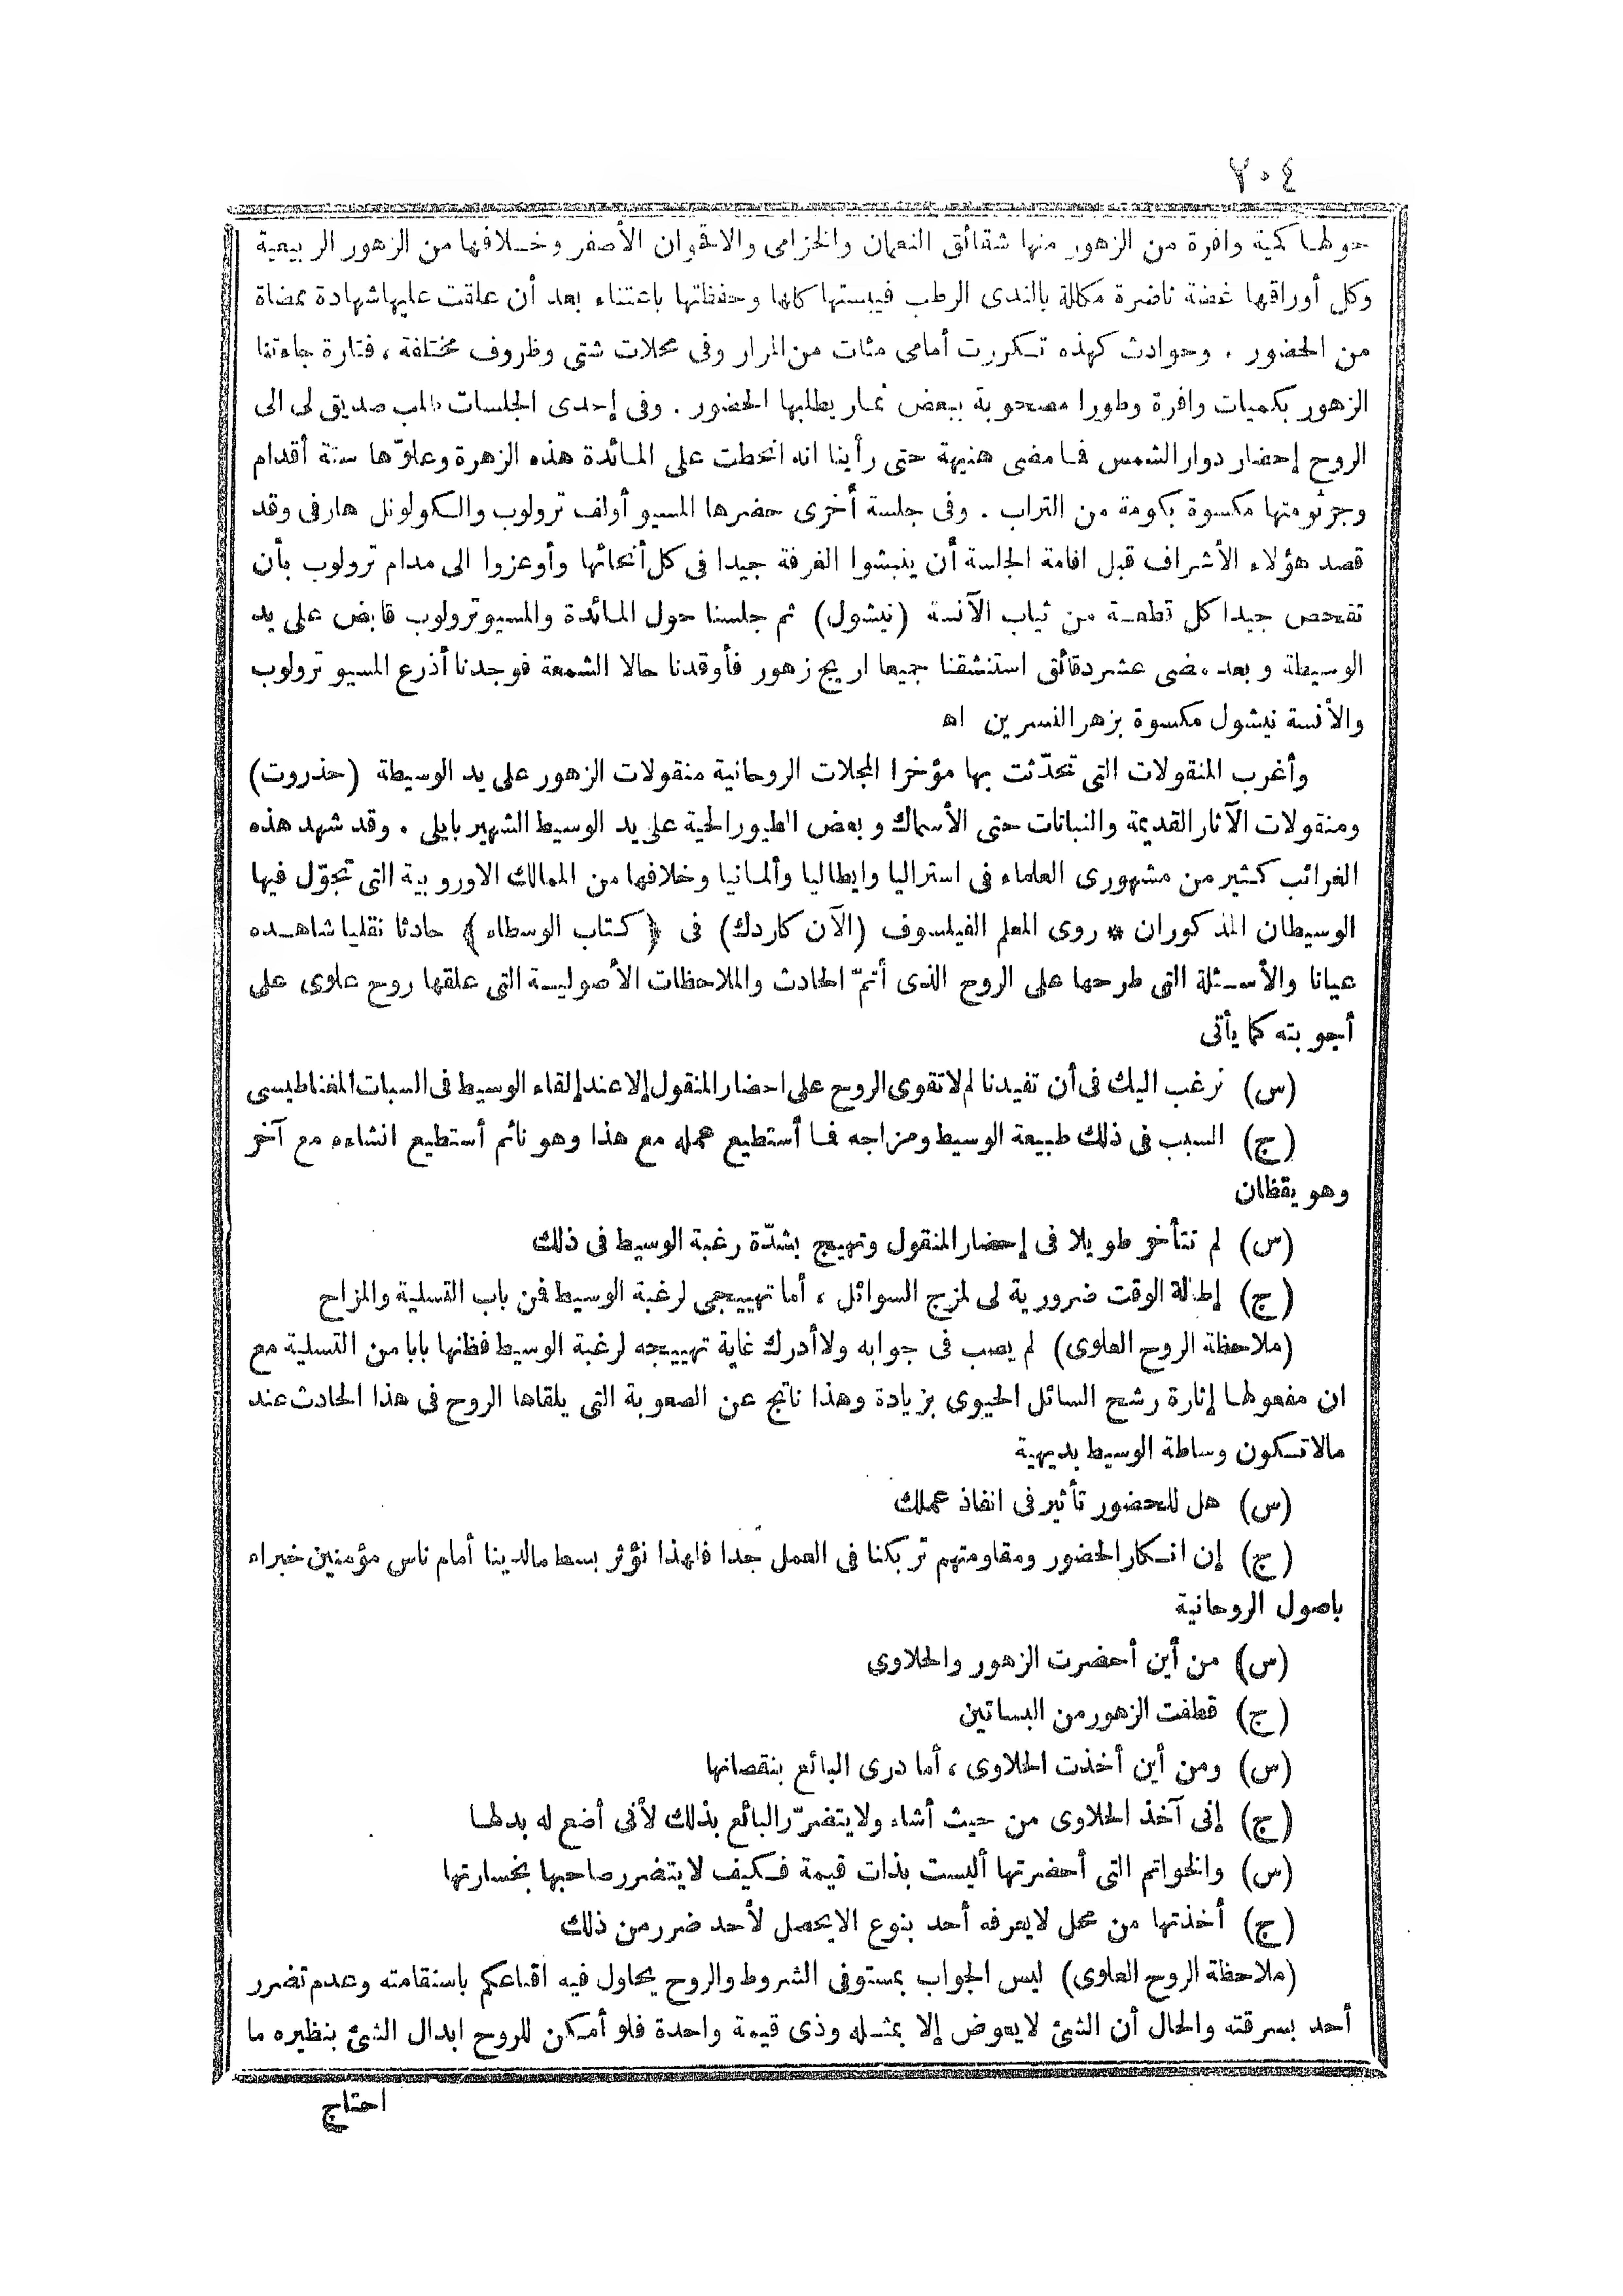 ٢٠٤
حولها كمية وافرة من الزهور منها شقائق النعمان والخزامى والاقحوان الأصفر وخلافها من الزهور الربيعية
وكل أوراقها غضة ناضرة مكللة بالندى الرطب فيبستها كلها وحفظتها باعتناء بعد أن علقت عليها شهادة ممضاة
من الحضور . وحوادث كهذه تكررت أمامى مئات من المرار وفى محلات شتى وظروف مختلفة ، فتارة جاءتنا
الزهور بكميات وافرة وطورا مصحوبة ببعض ثمار يطلبها الحضور . وفى إحدى الجلسات طلب صديق لى الى
الروح إحضار دوار الشمس فما مضى هنيهة حتى رأينا انه انحطت على المائدة هذه الزهرة وعلوّها ستة أقدام
وجرثومتها مكسوة بكومة من التراب . وفى جلسة أخرى حضرها المسيو أولف ترولوب والكولونل هارفى وقد
قصد هؤلاء الأشراف قبل اقامة الجلسة أن ينبشوا الغرفة جيدا فى كل أنحائها وأوعزوا الى مدام ترولوب بأن
تفحص جيدا كل قطعة من ثياب الآنسة (نيشول) ثم جلسنا حول المائدة والمسيو ترولوب قابض على يد
الوسيطة وبعد مضى عشر دقائق استنشقنا جميعا اريج زهور فأوقدنا حالا الشمعة فوجدنا أذرع المسيو ترولوب
والأنسة نيشول مكسوة بزهر النسرين اه
وأغرب المنقولات التى تحدّثت بها مؤخرا المجلات الروحانية منقولات الزهور على يد الوسيطة (حذروت)
ومنقولات الآثار القديمة والنباتات حتى الأسماك وبعض الطيور الحية على يد الوسيط الشهير بايلى . وقد شهد هذه
الغرائب كثير من مشهورى العلماء فى استراليا وايطاليا وألمانيا وخلافها من الممالك الاوروبية التى تجوّل فيها
الوسيطان المذكوران * روى المعلم الفيلسوف (الآن كاردك) فى ﴿كتاب الوسطاء﴾ حادثا نقليا شاهده
عيانا والأسئلة التى طرحها على الروح الذى أتمّ الحادث والملاحظات الأصولية التى علقها روح علوى على
أجوبته كما يأتى
(س) نرغب اليك فى أن تفيدنا لم لاتقوى الروح على احضار المنقول إلا عند إلقاء الوسيط فى السبات المغناطيسى
(ج) السبب فى ذلك طبيعة الوسيط ومزاجه فما أستطيع عمله مع هذا وهو نائم أستطيع انشاءه مع آخر
وهو يقظان
(س) لم تتأخر طويلا فى إحضار المنقول وتهييج بشدّة رغبة الوسيط فى ذلك
(ج) إطالة الوقت ضرورية لى لمزج السوائل ، أما تهييجى لرغبة الوسيط فمن باب التسلية والمزاح
(ملاحظة الروح العلوى) لم يصب فى جوابه ولا أدرك غاية تهييجه لرغبة الوسيط فظنها بابا من التسلية مع
ان مفعولها إثارة رشح السائل الحيوى بزيادة وهذا ناتج عن الصعوبة التى يلقاها الروح فى هذا الحادث عند
مالاتكون وساطة الوسيط بديهية
(س) هل للحضور تأثير فى انفاذ عملك
(ج) إن انكار الحضور ومقاومتهم تربكنا فى العمل جدا فلهذا نؤثر بسط مالدينا أمام ناس مؤمنين خبراء
باصول الروحانية
(س) من أين أحضرت الزهور والحلاوى
(ج) قطفت الزهور من البساتين
(س) ومن أين أخذت الحلاوى ، أما درى البائع بنقصانها
(ج) إنى آخذ الحلاوى من حيث أشاء ولا يتضرّر البائع بذلك لأنى أضع له بدلها
(س) والخواتم التى أحضرتها أليست بذات قيمة فكيف لايتضرر صاحبها بخسارتها
(ج) أخذتها من محل لايعرفه أحد بنوع الايحصل لأحد ضرر من ذلك
(ملاحظة الروح العلوى) ليس الجواب بمستوفى الشروط والروح يحاول فيه اقناعكم باستقامته وعدم تضرر
أحد بسرقته والحال أن الشئ لايعوض إلا بمثله وذى قيمة واحدة فلو أمكن للروح ابدال الشئ بنظيره ما
احتاج